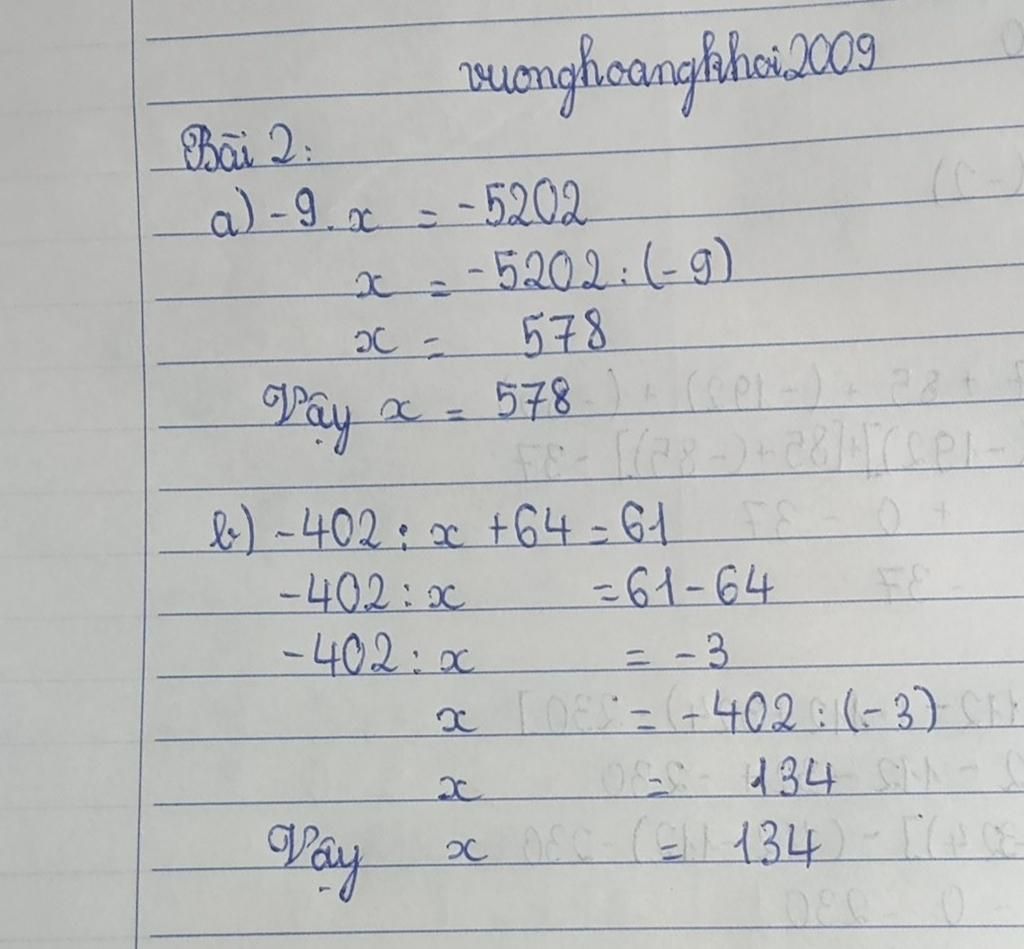 vuonghoangkhoi2009
Bài 2:
a) -9. x = -5202
x = -5202 : (-9)
x = 578
Vậy x = 578
b) -402 : x + 64 = 61
-402 : x = 61 - 64
-402 : x = -3
x = -402 : (-3)
x = 134
Vậy x = 134